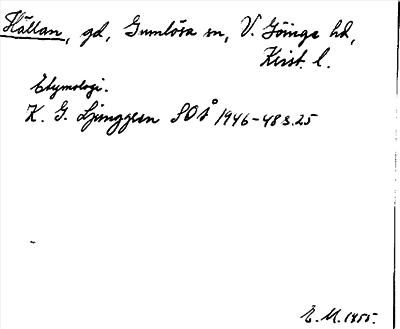 Hällan, gd, Gumlösa sn, V. Göinge hd,
Krist. l.
Etymologi.
K. G. Ljunggren SOÅ 1946-48 s. 25
E. M. 1955.